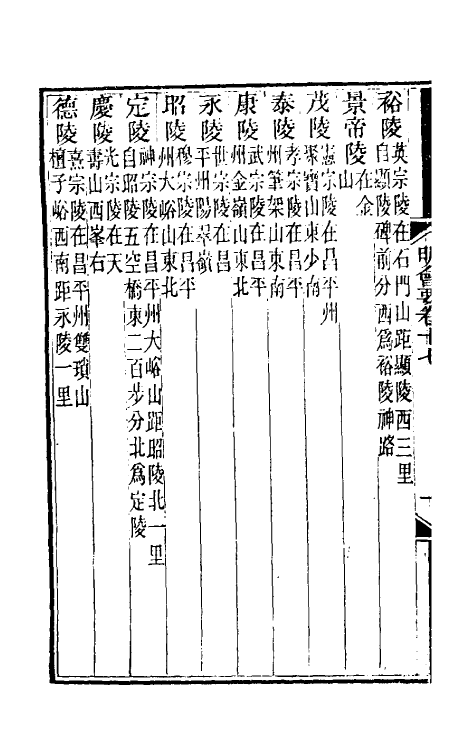 裕陵英宗陵在石門山距顯陵西三里
自顯陵碑前分西爲裕陵神路
景帝陵在金
山
茂陵憲宗陵在昌平州
聚寶山東少南
泰陵孝宗陵在昌平
州筆架山東南
康陵武宗陵在昌平
州金嶺山東北
永陵世宗陵在昌
平州陽翠嶺
昭陵穆宗陵在昌平
州大峪山東北
定陵神宗陵在昌平州大峪山距昭陵北一里
自昭陵五空橋東二百步分北爲定陵
慶陵光宗陵在天
壽山西峯右
德陵熹宗陵在昌平州雙瑣山
檀子峪西南距永陵一里
明會要卷十七